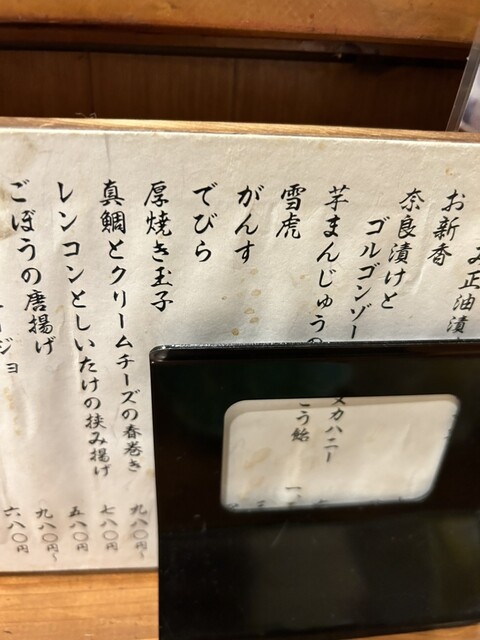 み正油漬
お新香
奈良漬けと
ゴルゴンゾー
カハニー
芋まんじゅうの
雪虎
がんす
でびら
厚焼き玉子
真鯛とクリームチーズの春巻き 九八〇〜
レンコンとしいたけの挟み揚げ 七八〇円
ごぼうの唐揚げ 五八〇円
ージョ 九八〇円〜
六八〇円